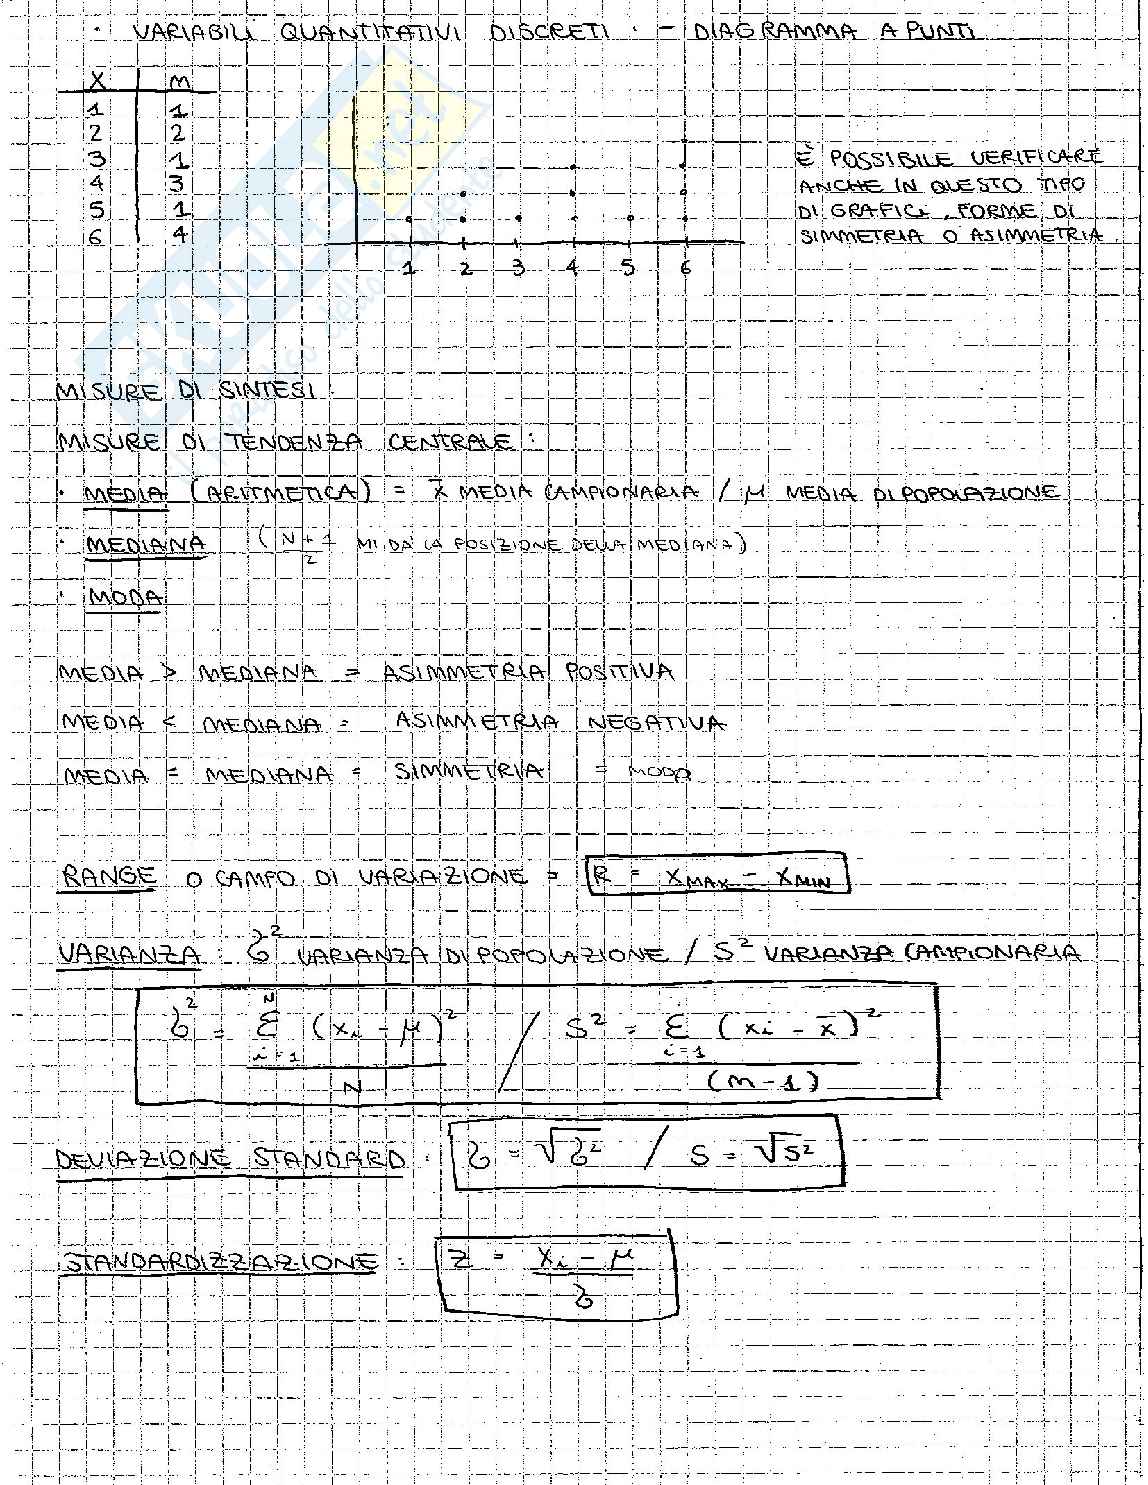 · VARIABILI QUANTITATIVI DISCRETI · - DIAGRAMMA A PUNTI
X m
1 1
2 2
3 1
4 3
5 1
6 4
1 2 3 4 5 6
È POSSIBILE VERIFICARE
ANCHE IN QUESTO TIPO
DI GRAFICI, FORME DI
SIMMETRIA O ASIMMETRIA.
MISURE DI SINTESI.
MISURE DI TENDENZA CENTRALE:
· MEDIA (ARITMETICA) = x̄ MEDIA CAMPIONARIA / μ MEDIA DI POPOLAZIONE
· MEDIANA (N+1/2 MI DA LA POSIZIONE DELLA MEDIANA)
· MODA
MEDIA > MEDIANA = ASIMMETRIA POSITIVA
MEDIA < MEDIANA = ASIMMETRIA NEGATIVA
MEDIA = MEDIANA = SIMMETRIA = MODA
RANGE O CAMPO DI VARIAZIONE = R = XMAX - XMIN
VARIANZA: σ² VARIANZA DI POPOLAZIONE / S² VARIANZA CAMPIONARIA
σ² = Σ N i=1 (xi - μ)² / N / S² = Σ i=1 (xi - x̄)² / (m-1)
DEVIAZIONE STANDARD: σ = √σ² / S = √S²
STANDARDIZZAZIONE: Z = xi - μ / σ